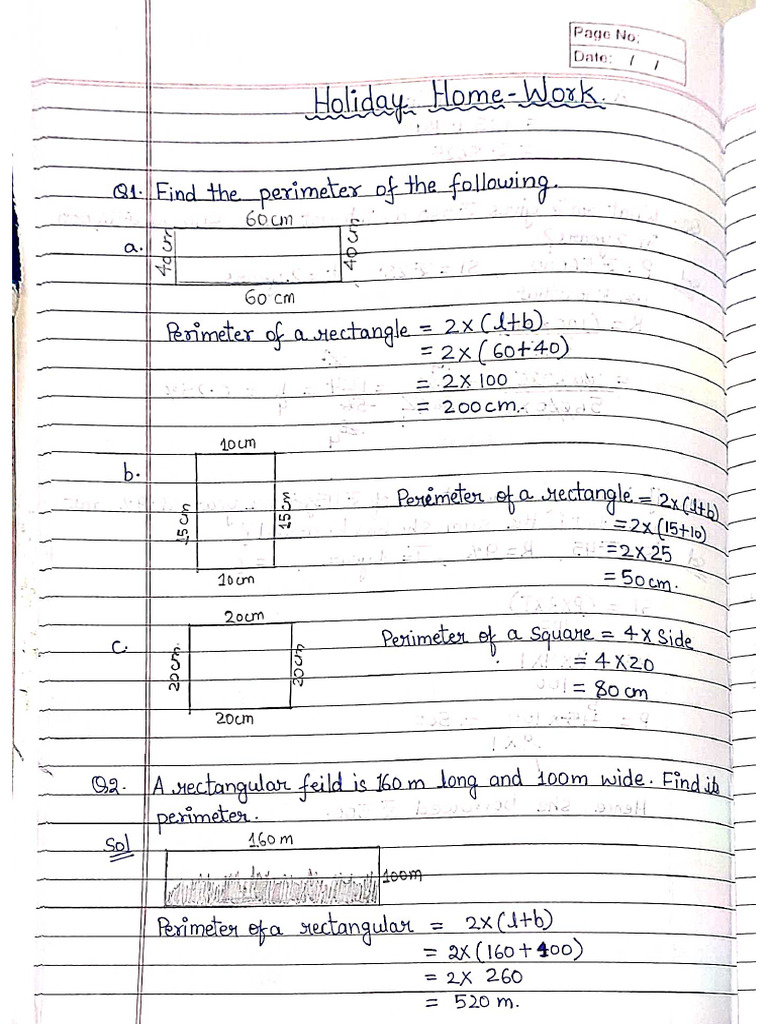 Page No:
Date: / /
Holiday Home-Work.
Q1. Find the perimeter of the following.
60cm
a. 40cm 40cm
60 cm
Perimeter of a rectangle = 2x(l+b)
= 2x(60+40)
= 2x100
= 200cm.
10cm
b.
15cm 15cm
10cm
Perimeter of a rectangle = 2x(l+b)
= 2x(15+10)
= 2x25
= 50cm.
20cm
c.
20cm 20cm
20cm
Perimeter of a Square = 4xSide
= 4x20
= 80cm
Q2. A rectangular feild is 160m long and 100m wide. Find its
perimeter.
Sol
160m
100m
Perimeter of a rectangular = 2x(l+b)
= 2x(160+100)
= 2x 260
= 520 m.